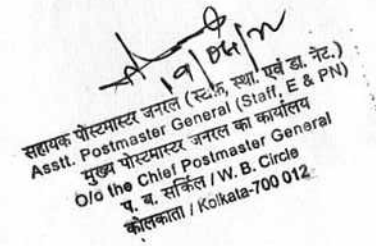 सहायक पोस्टमास्टर जनरल (स्टाफ, स्था. एवं डा. नेट.)
Asstt. Postmaster General (Staff, E & PN)
मुख्य पोस्टमास्टर जनरल का कार्यालय
O/o the Chief Postmaster General
प. ब. सर्किल / W. B. Circle
कोलकाता / Kolkata-700 012